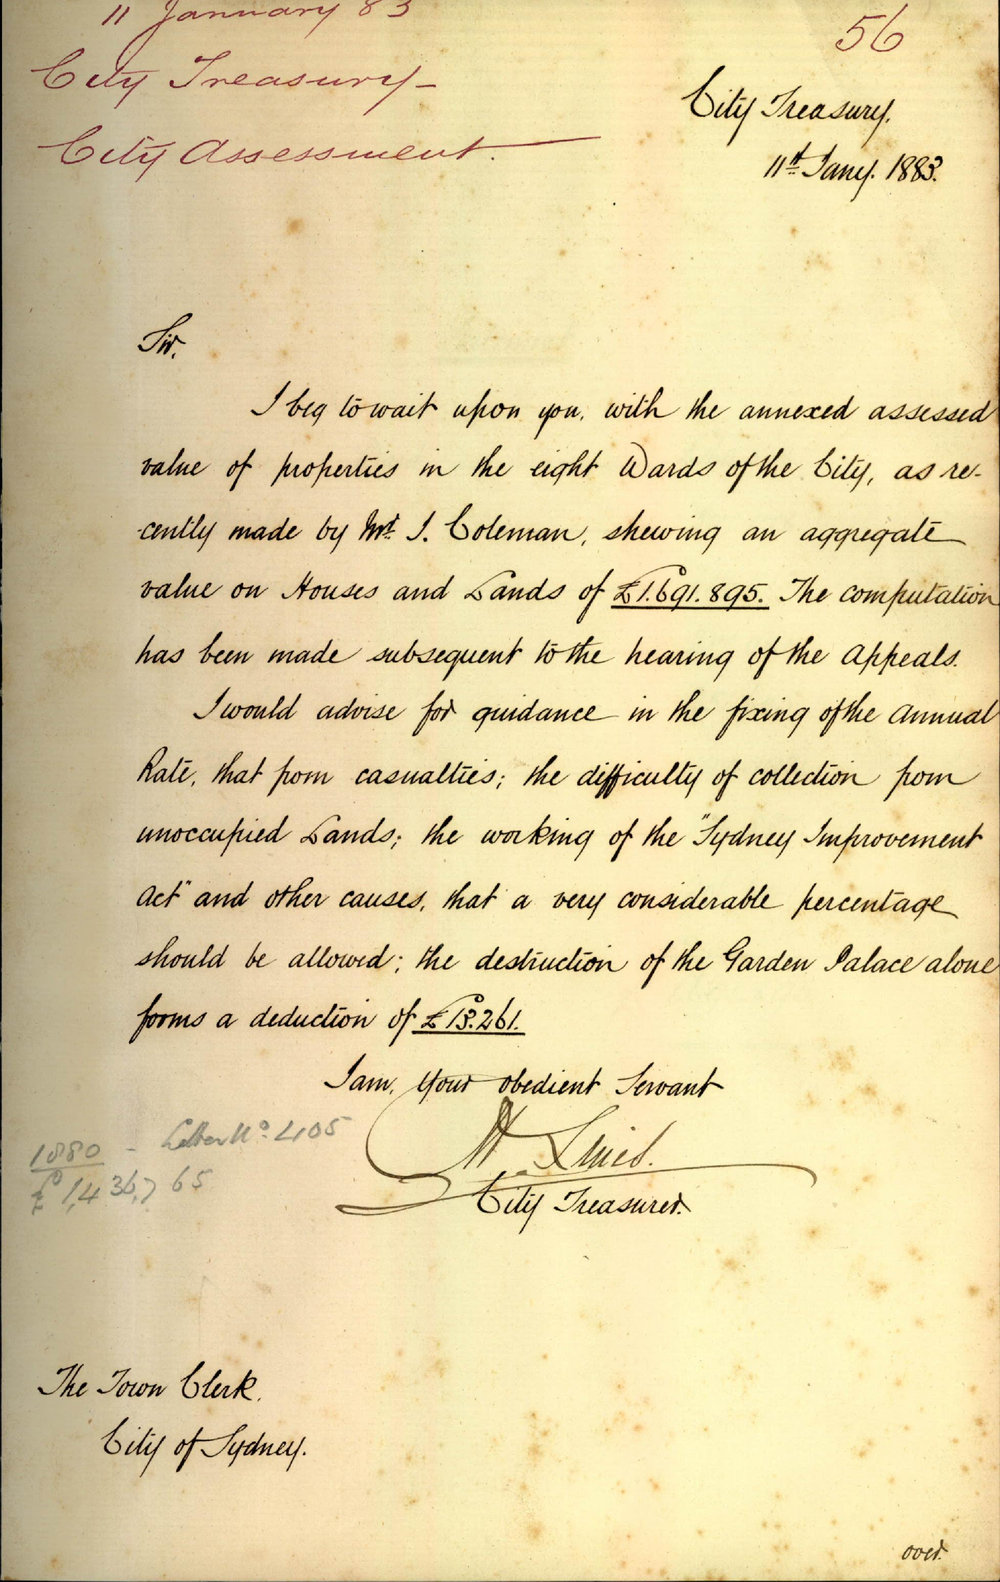 11 January 83
56
City Treasury -
City Assessment.
City Treasury.
11th Jany. 1883.
Sir,
I beg to wait upon you, with the annexed assessed
value of properties in the eight Wards of the City, as re-
-cently made by Mr. J. Coleman, shewing an aggregate
value on Houses and Lands of £1.691.895. The computation
has been made subsequent to the hearing of the Appeals.
I would advise for guidance in the fixing of the Annual
Rate, that from casualties; the difficulty of collection from
unoccupied Lands; the working of the "Sydney Improvement
Act" and other causes, that a very considerable percentage
should be allowed; the destruction of the Garden Palace alone
forms a deduction of £13.261.
I am, Your obedient Servant
City Treasurer.
1880 - Letter No. 405
£1,436,765
The Town Clerk.
City of Sydney.
over.